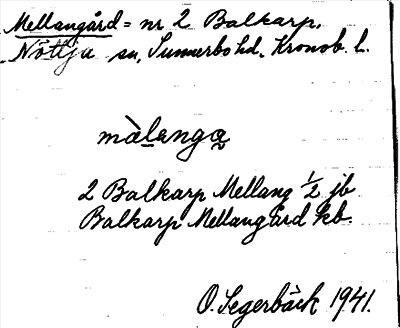 Mellangård = nr 2 Balkarp,
Nöttja sn, Sunnerbo hd, Kronob. l.
màlanga
2 Balkarp Mellang 1/2 jb
Balkarp Mellangård kb.
O. Segerbäck 1941.